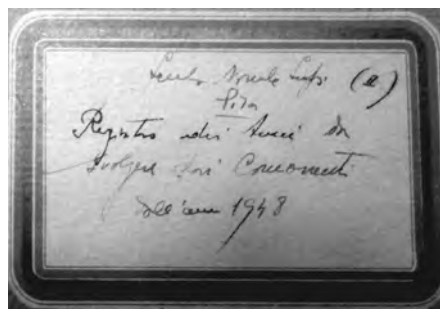 Scuola Normale Sup. (a)
Pisa
Registro dei Temi da
svolgere dai Concorrenti
dall'anno 1948